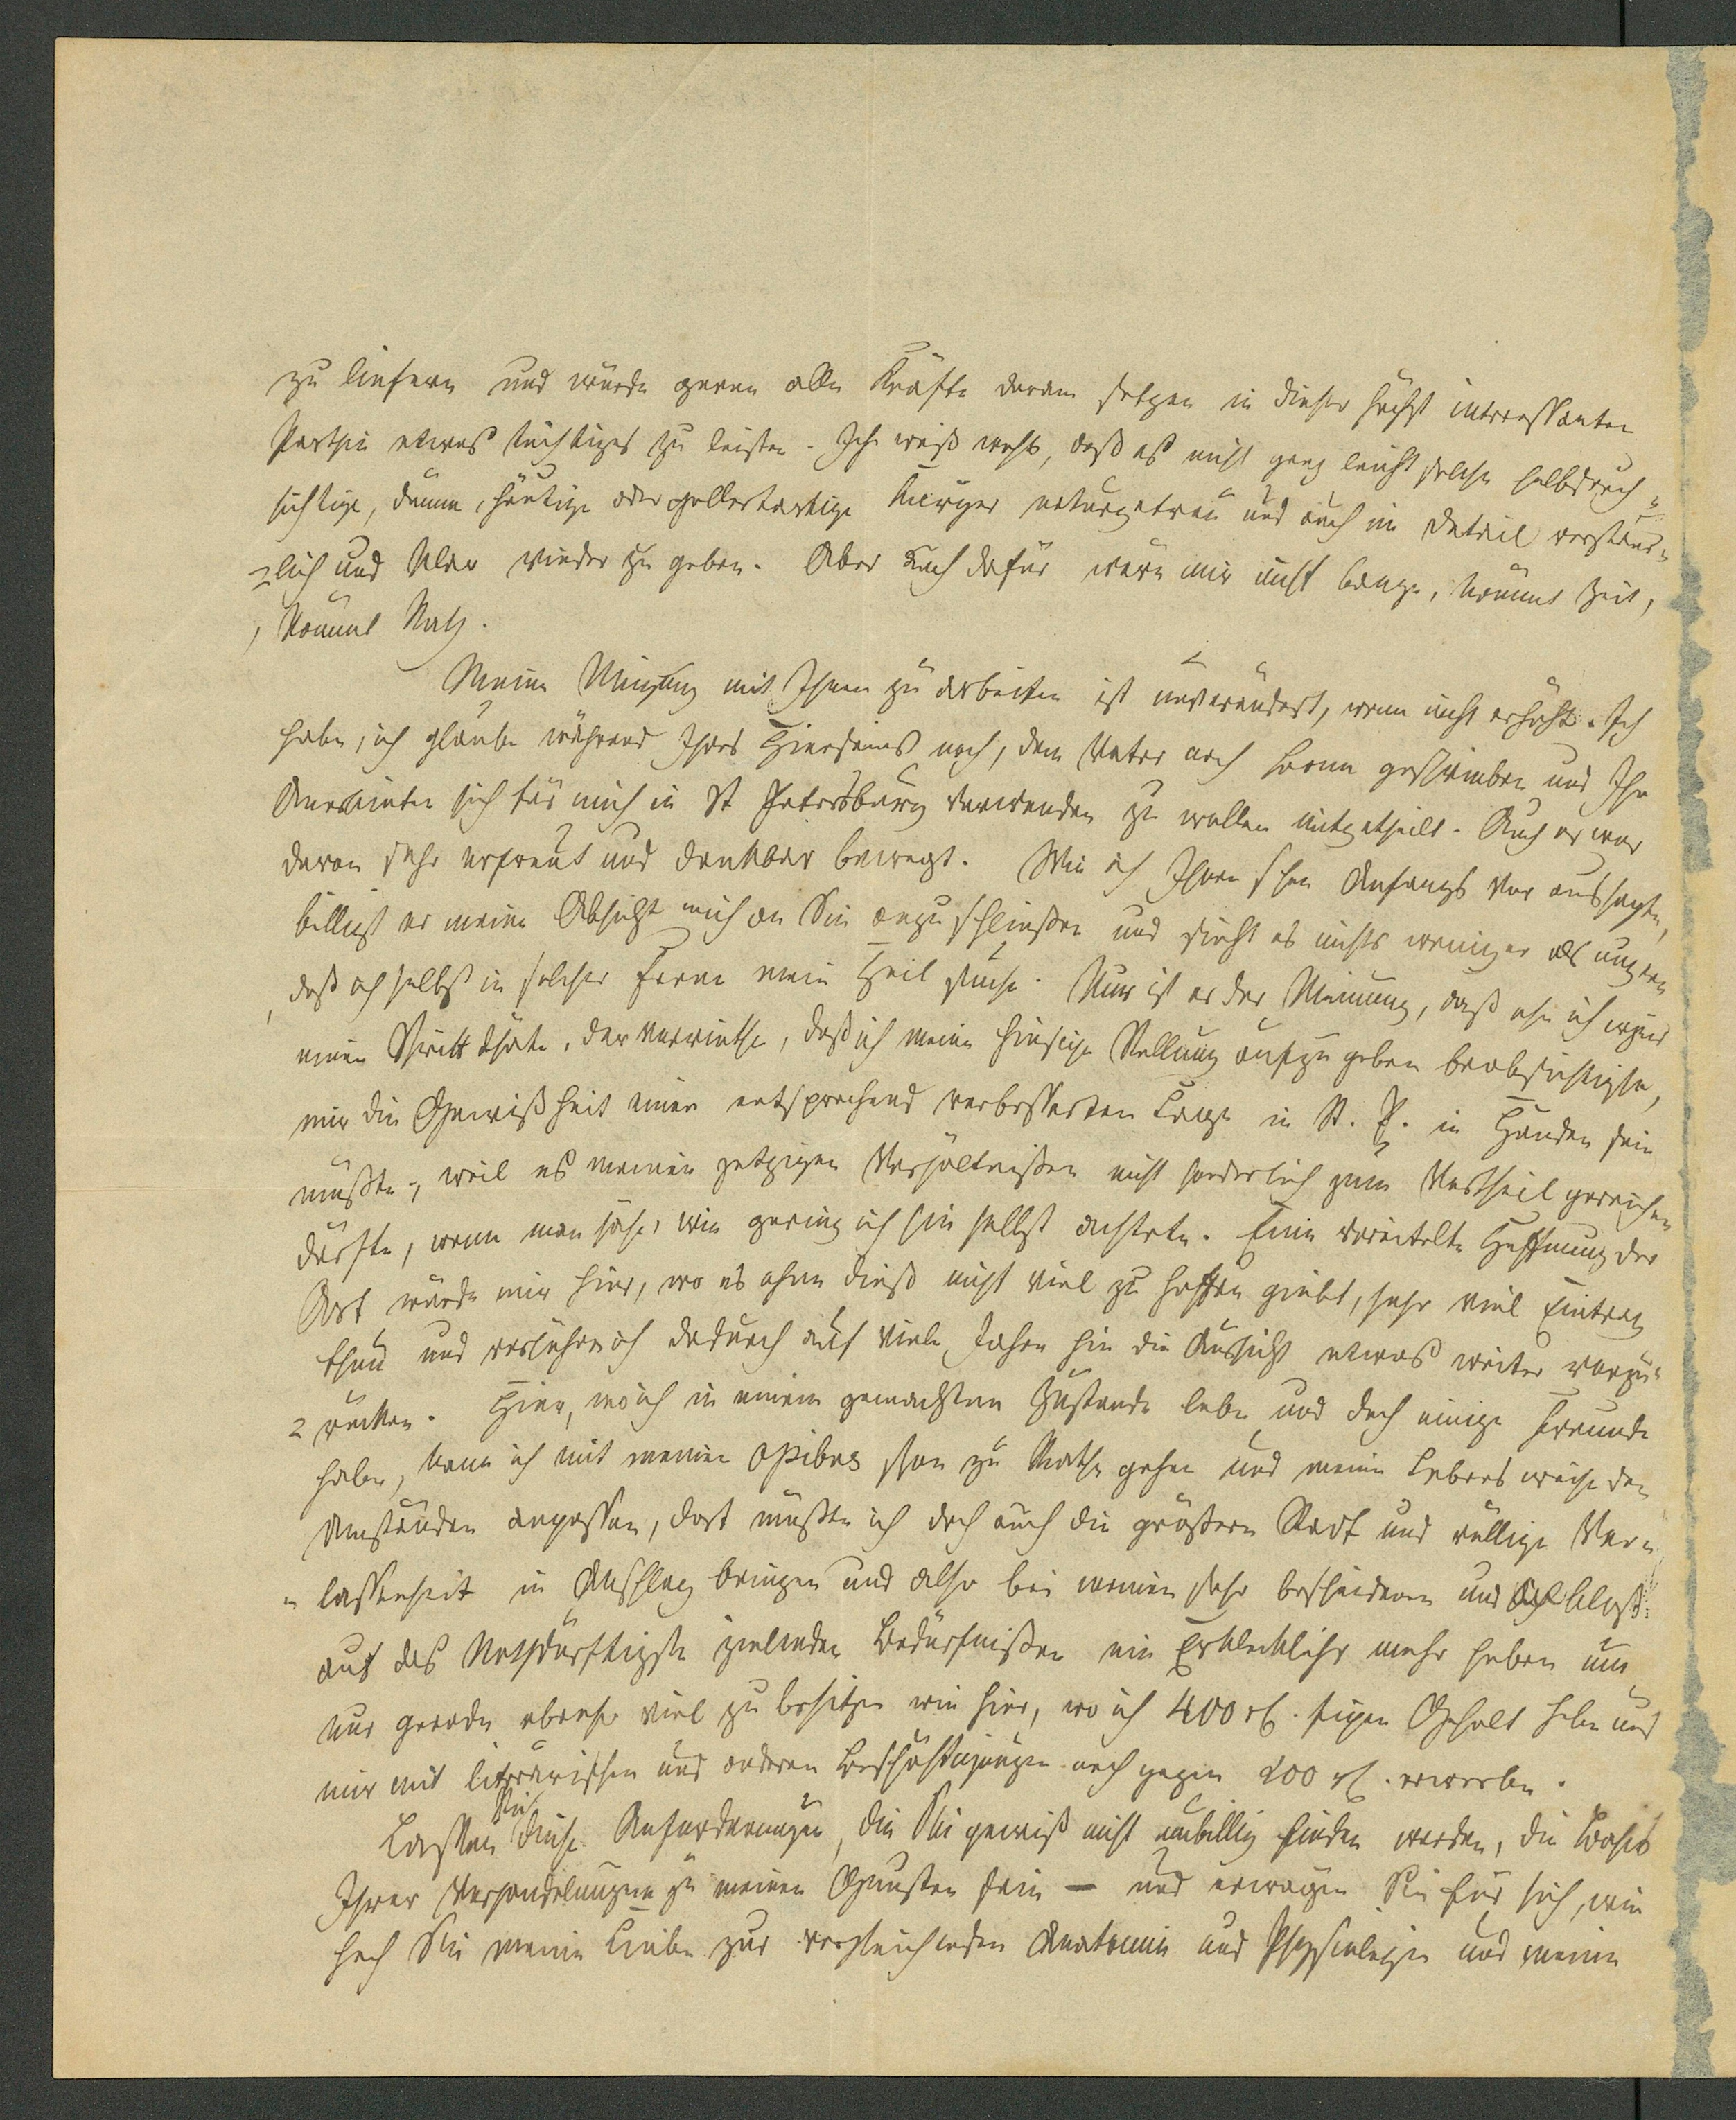 zu liefern und würde gerne alle Kräfte daran setzen in dieser höchst interessanten
Parthie etwas tüchtiges zu leisten. Ich weiß wohl, daß es nicht ganz leicht solche halbdurch-
sichtige, dünne, häutige oder gallertartige Körper naturgetreu und auch im Detail verständ-
=lich und klar wieder zu geben. Aber auch dafür wäre mir nicht bange, kömmt Zeit,
kömmt Rath.
Meine Neigung mit Ihnen zu arbeiten ist unverändert, wenn nicht erhöht. Ich
habe, ich glaube während Ihres Hierseins noch, dem Vater nach Bonn geschrieben und Ihr
Anerbieten sich für mich in St Petersburg verwenden zu wollen mitgetheilt. Auch er war
davon sehr erfreut und dankbar bewegt. Wie ich Ihnen schon Anfangs voraussagte,
billigt er meine Absicht mich an Sie anzuschließen und sieht es nichts weniger als ungern
daß ich selbst in solcher Ferne mein Heil suche. Nur ist er der Meinung, daß ehe ich irgend
einen Schritt thäte, der verriethe, daß ich meine hiesige Stellung aufzugeben beabsichtige,
mir die Gewißheit einer entsprechend verbesserten Lage in St. P. in Händen sein
müßte, weil es meinen jetzigen Verhältnißen nicht sonderlich zum Vortheil gereichen
dürfte, wenn man sähe, wie gering ich sie selbst achtete. Eine vereitelte Hoffnung der
Art würde mir hier, wo es ohne dieß nicht viel zu hoffen giebt, sehr viel Eintrag
thun und verlöhre ich dadurch auf viele Jahre hin die Aussicht etwas weiter vorzu-
=rücken. Hier, wo ich in einem gemachten Zustande lebe und doch einige Freunde
habe, kann ich mit meinen opibus schon zu Rathe gehen und meine Lebensweise den
Umständen anpassen, dort müßte ich doch auch die größere Stadt und völlige Ver-
-lassenheit in Anschlag bringen und also bei meinen sehr bescheidenen und bloß
auf das Nothdürftigste zielenden Bedürfnißen ein Erkleckliches mehr haben um
nur gerade ebenso viel zu besitzen wie hier, wo ich 400 rf. fixen Gehalt habe und
mir mit literärischen und anderen Beschäftigungen noch gegen 200 rf. erwerbe.
Lassen Sie diese Anforderungen, die Sie gewiß nicht unbillig finden werden, die Basis
Ihrer Verhandelungen zu meinen Gunsten sein — und erwägen Sie für sich, wie
hoch Sie meine Liebe zur vergleichenden Anatomie und Physiologie und meine